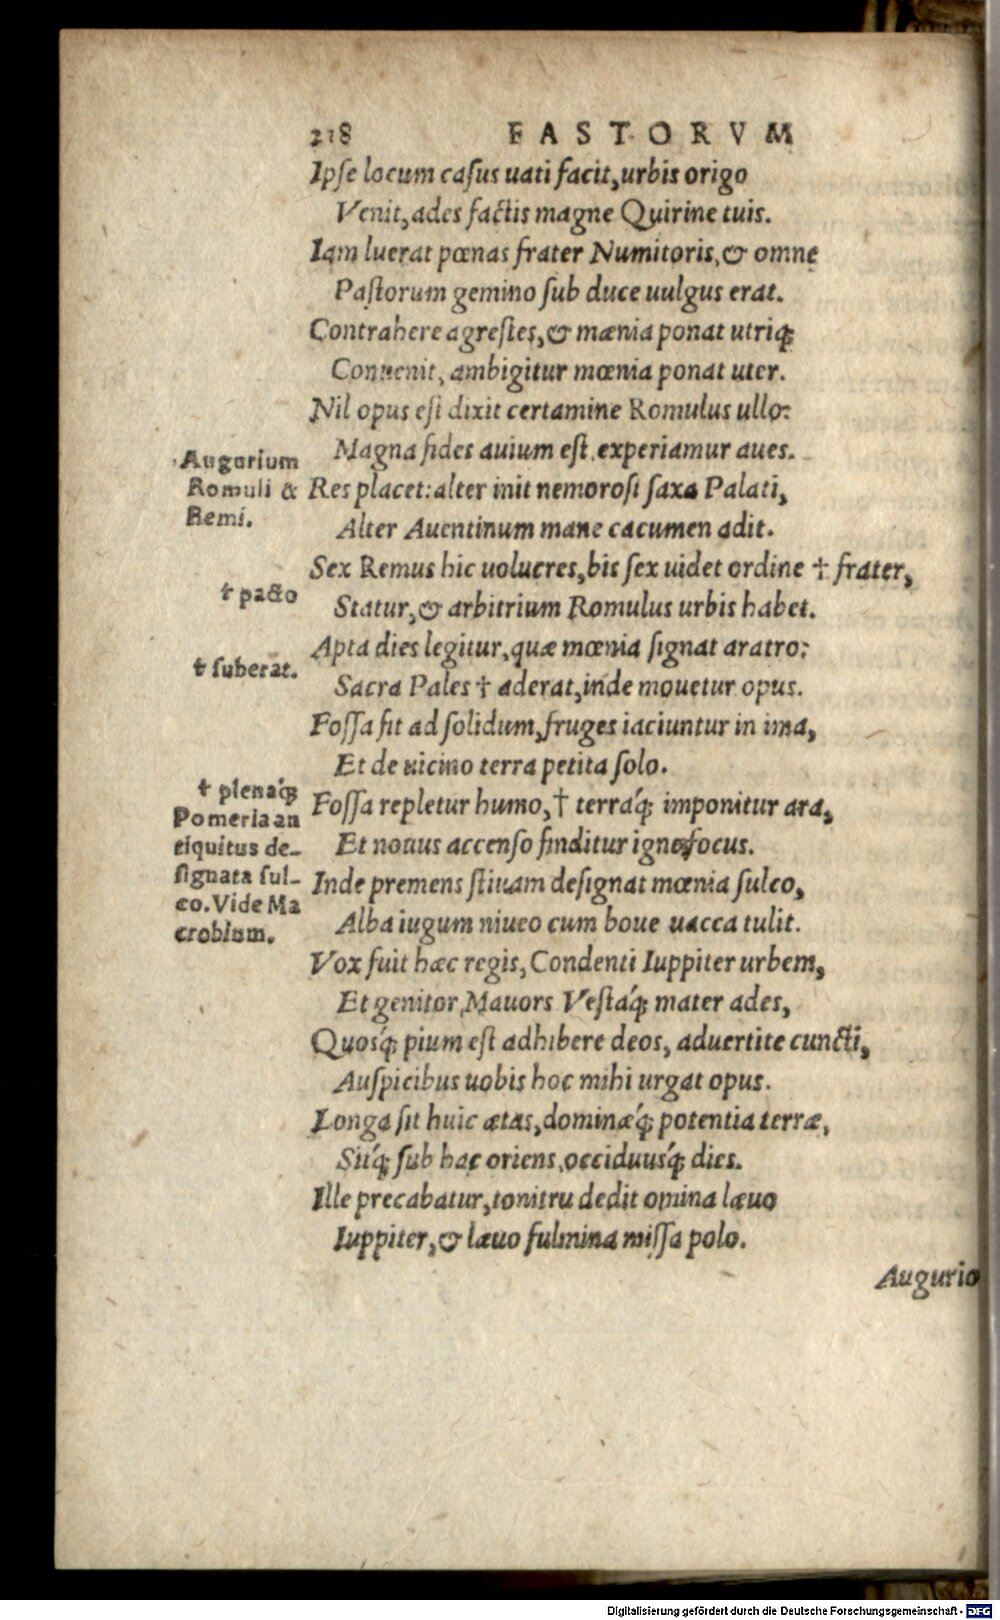 218 FASTORVM
Ipse locum casus uati facit, urbis origo
Venit, ades factis magne Quirine tuis.
Iam luerat pœnas frater Numitoris, & omne
Pastorum gemino sub duce uulgus erat.
Contrahere agrestes, & mœnia ponat utriq;
Conuenit, ambigitur mœnia ponat uter.
Nil opus est dixit certamine Romulus ullo:
Magna fides auium est, experiamur aues.
Augurium
Romuli &
Remi.
Res placet: alter init nemorosi saxa Palati,
Alter Auentinum mane cacumen adit.
Sex Remus hic uolucres, bis sex uidet ordine † frater,
† pacto
Statur, & arbitrium Romulus urbis habet.
Apta dies legitur, quæ mœnia signat aratro:
† suberat.
Sacra Pales † aderat, inde mouetur opus.
Fossa fit ad solidum, fruges iaciuntur in ima,
Et de uicino terra petita solo.
† plenáq;
Fossa repletur humo, † terráq; imponitur ara,
Pomeria an
tiquitus de-
signata sul-
co. Vide Ma
crobium.
Et nouus accenso finditur igne focus.
Inde premens stiuam designat mœnia sulco,
Alba iugum niueo cum boue uacca tulit.
Vox fuit hæc regis, Condenti Iuppiter urbem,
Et genitor Mauors Vestáq; mater ades,
Quosq́; pium est adhibere deos, aduertite cuncti,
Auspicibus uobis hoc mihi urgat opus.
Longa sit huic ætas, dominæq́; potentia terræ,
Sitq́; sub hac oriens, occiduusq́; dies.
Ille precabatur, tonitru dedit omina læuo
Iuppiter, & læuo fulmina missa polo.
Augurio
Digitalisierung gefördert durch die Deutsche Forschungsgemeinschaft - DFG